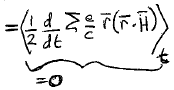 = ⟨ 1/2 d/dt Σ e/c r̄ (r̄ · H̄) ⟩_t
= 0